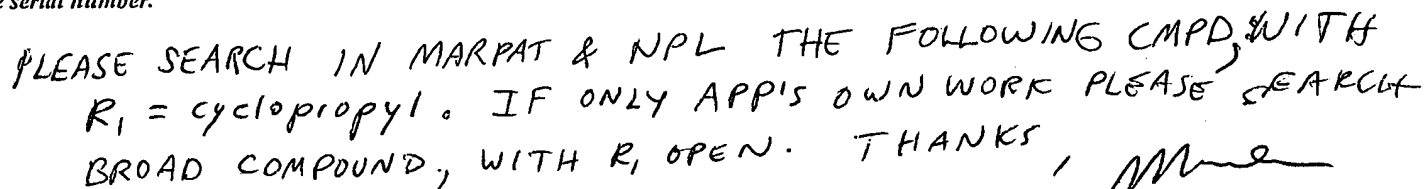 serial number.
PLEASE SEARCH IN MARPAT & NPL THE FOLLOWING CMPD, WITH
R1 = cyclopropyl. IF ONLY APP'S OWN WORK PLEASE SEARCH
BROAD COMPOUND, WITH R1 OPEN. THANKS,